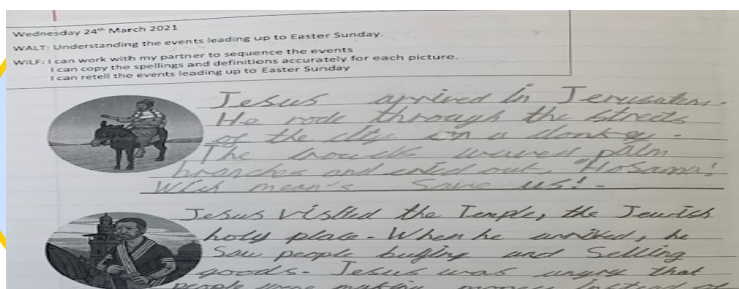 Wednesday 24th March 2021
WALT: Understanding the events leading up to Easter Sunday.
WILF: I can work with my partner to sequence the events
I can copy the spellings and definitions accurately for each picture.
I can retell the events leading up to Easter Sunday
Jesus arrived in Jerusalem.
He rode through the streets
of the city on a donkey.
The crowds waved palm
branches and cried out, "Hosanna!
Wich mean's Save us!.
Jesus visited the Temple, the Jewish
holy place. When he arrived, he
Saw people buying and Selling
goods. Jesus was angry that
people were making money instead of